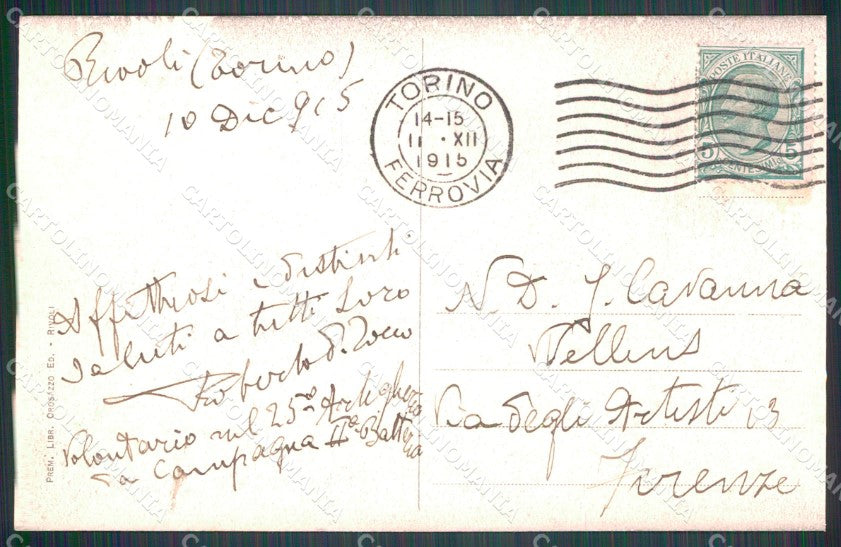 Rivoli (Torino)
10 Dic 915
TORINO
14-15
11 · XII
1915
FERROVIA
POSTE ITALIANE
5 5
Affettuosi e distinti
saluti a tutti Loro
Roberto
Volontario nel 25º Artiglieria
da Campagna IIª Batteria
N. D. J. Cavanna
Via degli Artisti 13
Firenze
PREM. LIBR. OROSAZZO ED. - RIVOLI
CARTOLINOMANIA